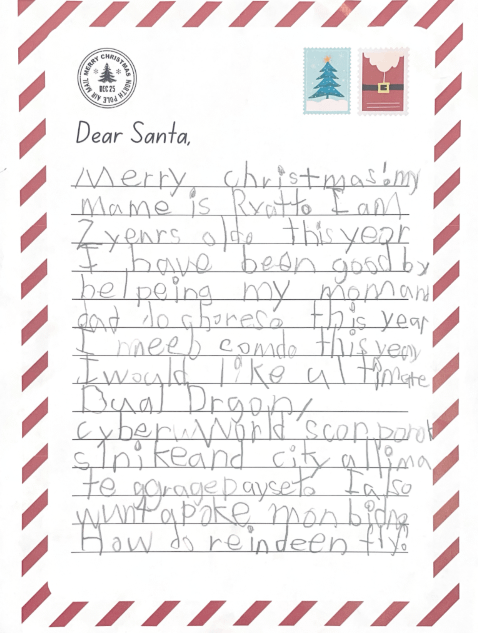 MERRY CHRISTMAS
DEC 25
NORTH POLE AIR MAIL
Dear Santa,
Merry christmas! my
Mame is Ryatto I am
7 yenrs oldo this year
I have been good by
helpeing my mom an
dad do choreso this year
I meeb comdo this yeay
I would like ultimate
Dual Drgon,
cyber World scorporot
strikeand city ultima
te ggragepayseto I also
wunt a poke mon bidng
How do reindeen fly?